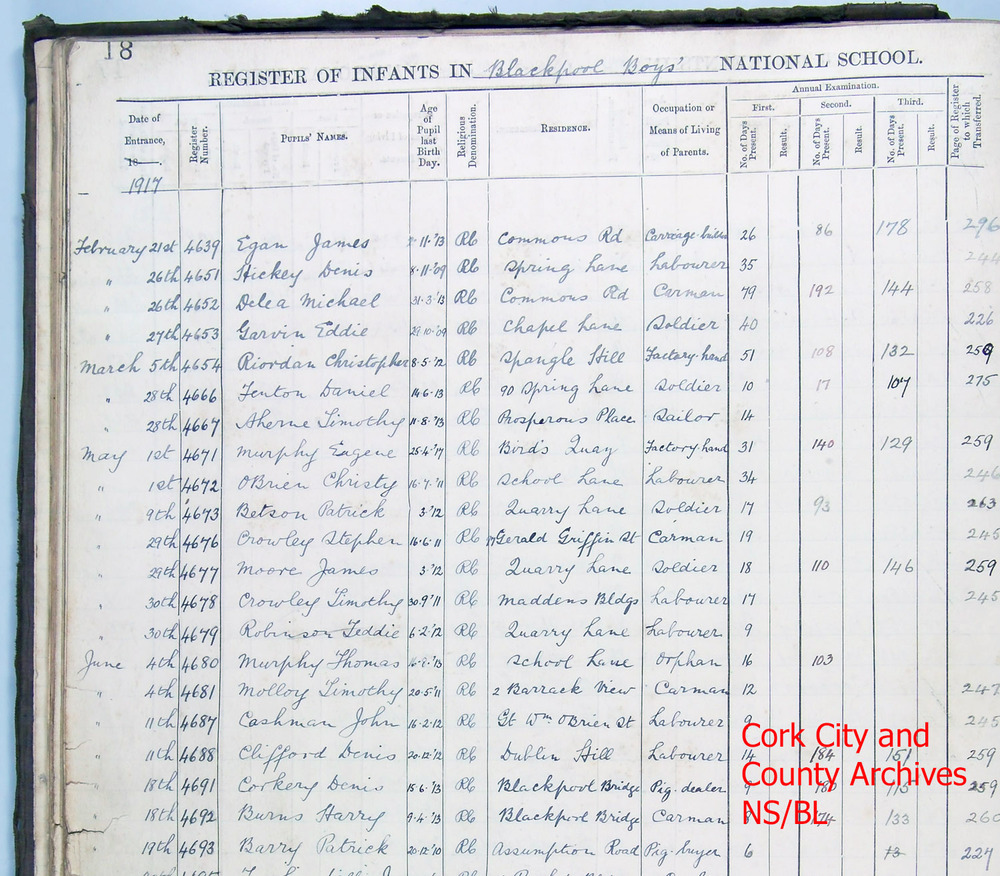 18
REGISTER OF INFANTS IN Blackpool Boys' NATIONAL SCHOOL.
Date of Entrance, 18——. 1917 Register Number. PUPILS' NAMES. Age of Pupil last Birth Day. Religious Denomination. RESIDENCE. Occupation or Means of Living of Parents. Annual Examination. First. No. of Days Present. Result. Second. No. of Days Present. Result. Third. No. of Days Present. Result. Page of Register to which Transferred.
February 21st 4639 Egan James 11·'13 RC Commons Rd Carriage builder 26 86 178 296
" 26th 4651 Hickey Denis 8·11·'09 RC Spring Lane Labourer 35 244
" 26th 4652 Delea Michael 31·3·'13 RC Commons Rd Carman 79 192 144 258
" 27th 4653 Garvin Eddie 29·10·'09 RC Chapel Lane Soldier 40 226
March 5th 4654 Riordan Christopher 8·5·'12 RC Spangle Hill Factory hand 51 108 132 259
" 28th 4666 Fenton Daniel 14·6·13 RC 90 Spring Lane Soldier 10 17 107 275
" 28th 4667 Aherne Timothy 11·8·'13 RC Prosperous Place Sailor 14
May 1st 4671 Murphy Eugene 25·4·'17 RC Bird's Quay Factory hand 31 140 129 259
" 1st 4672 OBrien Christy 16·7·'11 RC School Lane Labourer 34 246
" 9th 4673 Betson Patrick 3·'12 RC Quarry Lane Soldier 17 93 263
" 29th 4676 Crowley Stephen 16·6·11 RC Gerald Griffin St Carman 19 245
" 29th 4677 Moore James 3·'12 RC Quarry Lane Soldier 18 110 146 259
" 30th 4678 Crowley Timothy 30·9·'11 RC Maddens Bldgs Labourer 17 245
" 30th 4679 Robinson Teddie 6·2·'12 RC Quarry Lane Labourer 9
June 4th 4680 Murphy Thomas RC School Lane Orphan 16 103
" 4th 4681 Molloy Timothy 20·5·'11 RC 2 Barrack View Carman 12 247
" 11th 4687 Cashman John 16·2·12 RC Gt Wm OBrien St Labourer 9 245
" 11th 4688 Clifford Denis 20·12·'12 RC Dublin Hill Labourer 14 184 151 259
" 18th 4691 Corkery Denis 18·6·'13 RC Blackpool Bridge Pig dealer 9 180 115 259
" 18th 4692 Burns Harry 9·4·'13 RC Blackpool Bridge Carman 74 133 260
" 19th 4693 Barry Patrick 20·12·'10 RC Assumption Road Pig buyer 6 13 227
Cork City and
County Archives
NS/BL